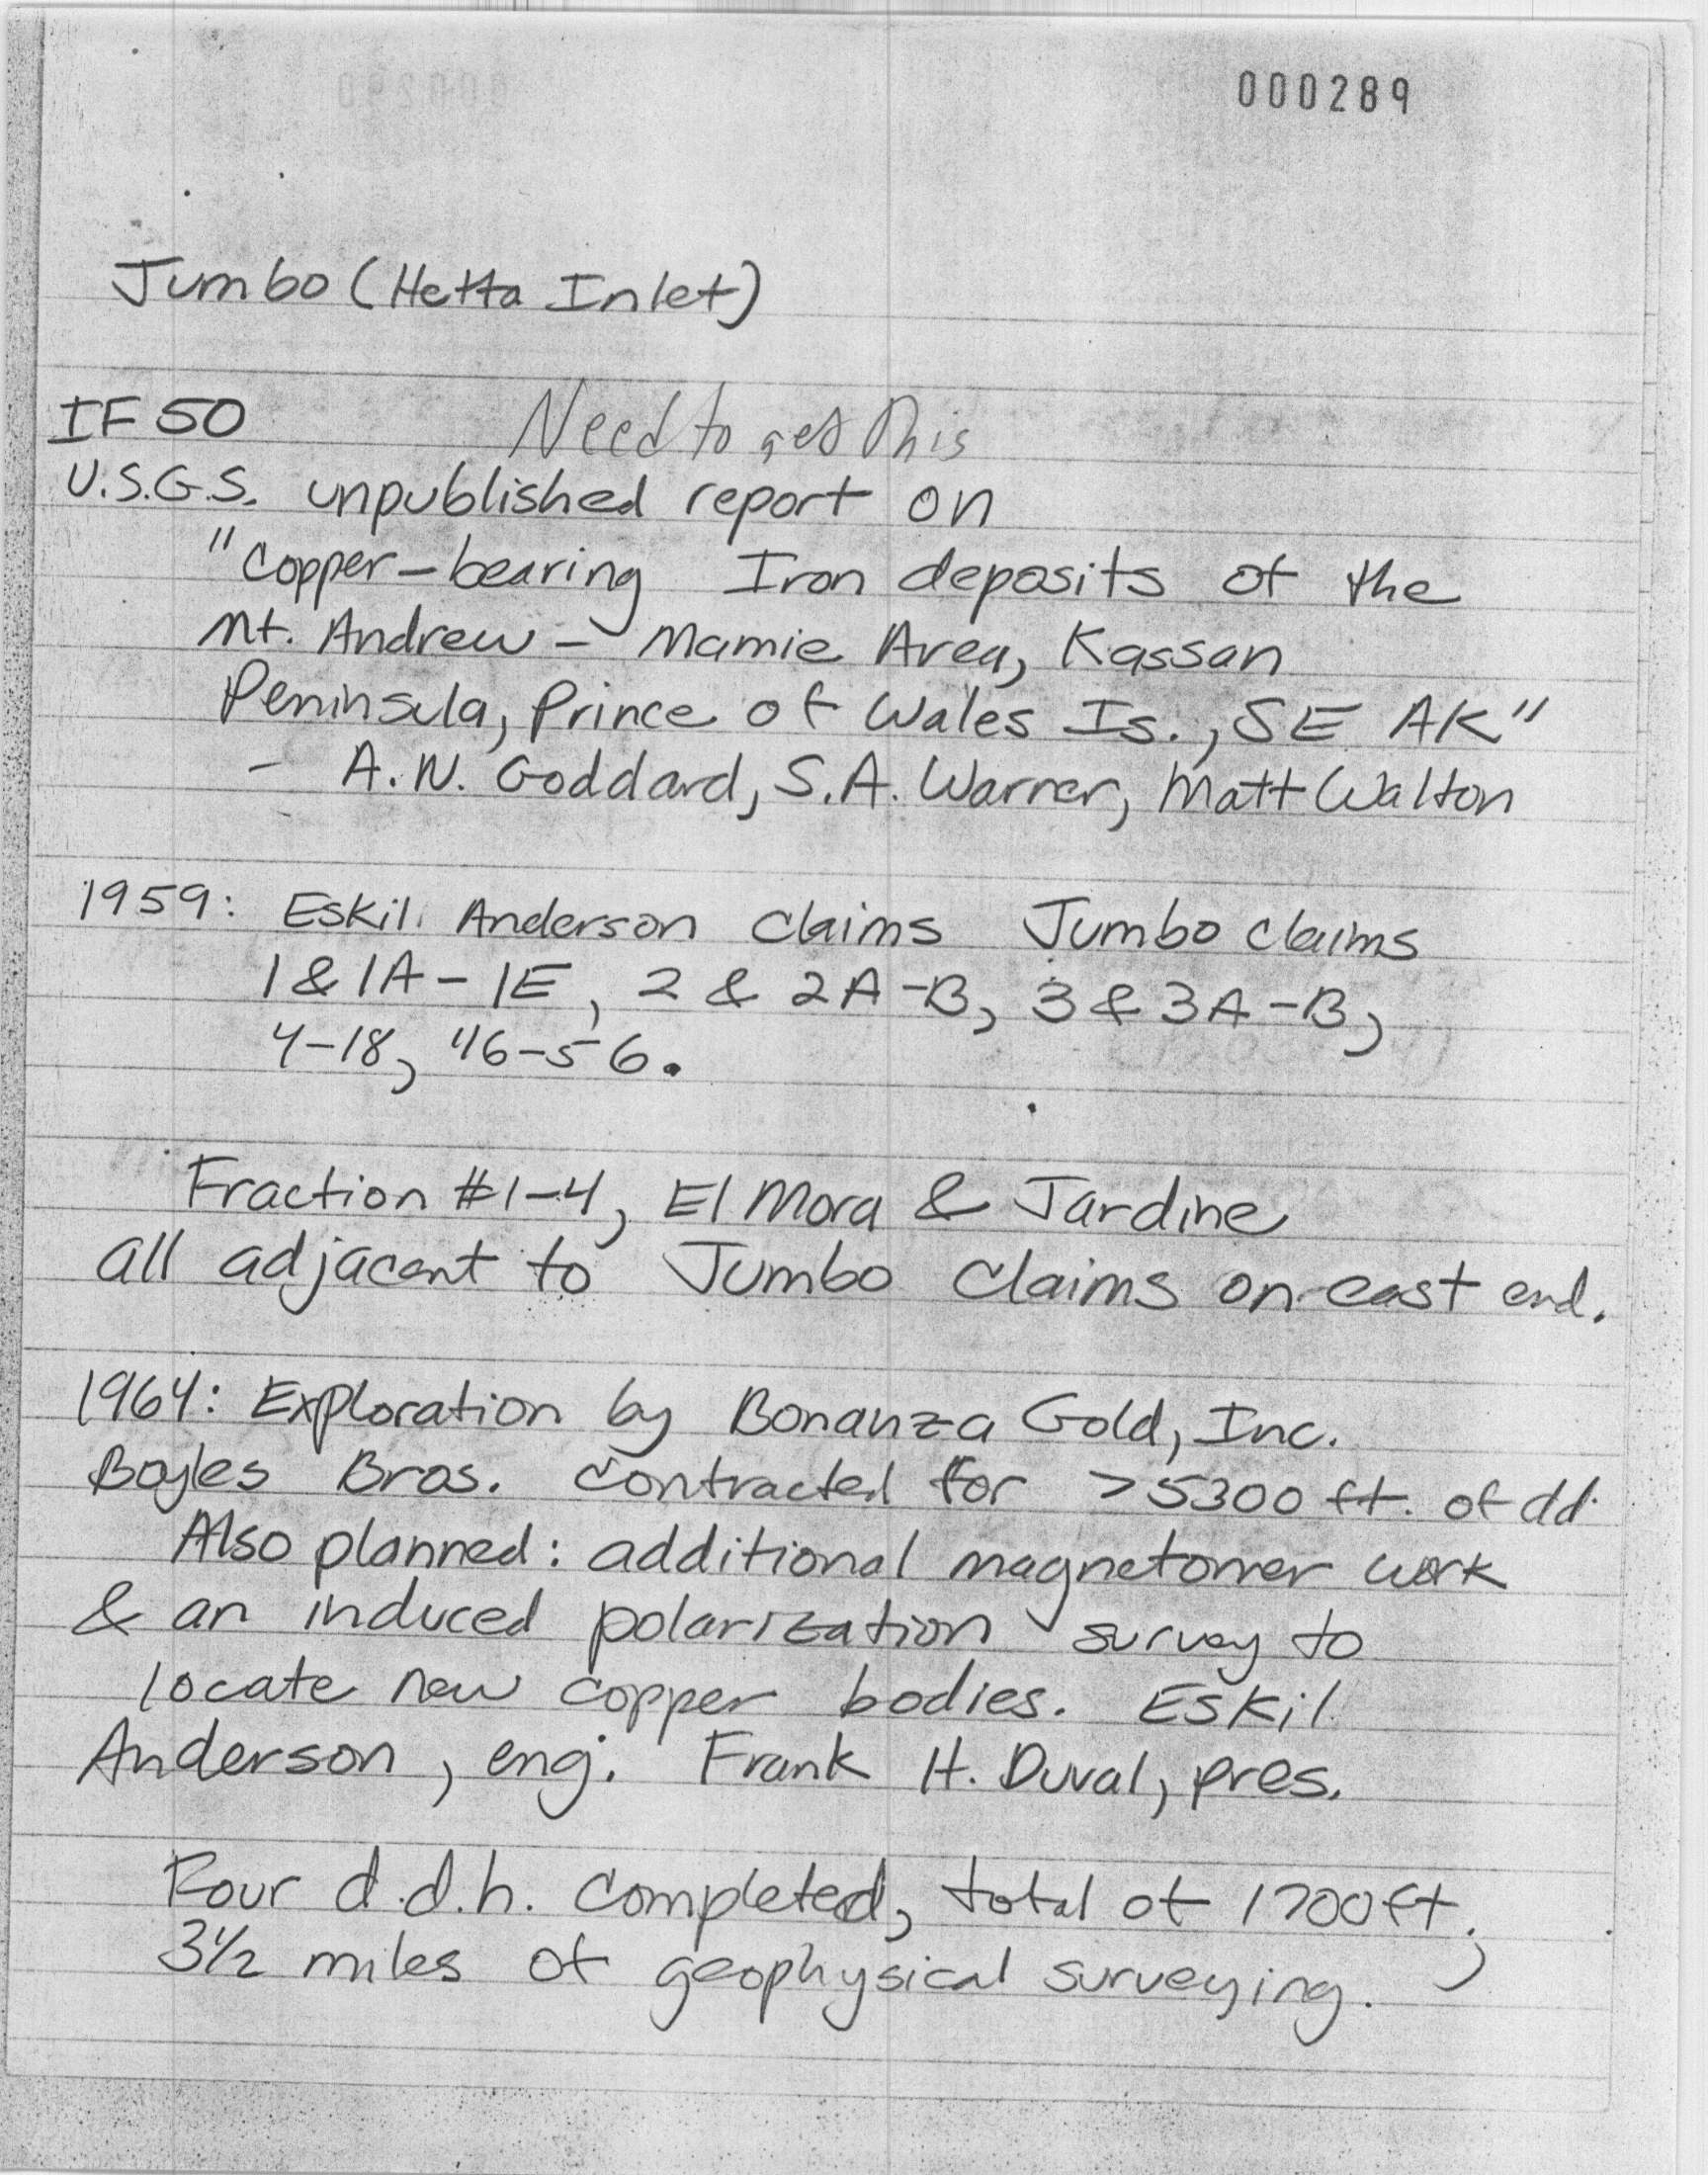 000289
Jumbo (Hetta Inlet)
IF 50
Need to get This
U.S.G.S. unpublished report on
"Copper-bearing Iron deposits of the
Mt. Andrew - Mamie Area, Kassan
Peninsula, Prince of Wales Is., SE AK"
- A.N. Goddard, S.A. Warner, Matt Walton
1959: Eskil Anderson claims Jumbo claims
1 & 1A - 1E, 2 & 2A-B, 3 & 3A-B,
4-18, 46-56.
Fraction #1-4, El Mora & Jardine
all adjacent to Jumbo claims on east end.
1964: Exploration by Bonanza Gold, Inc.
Boyles Bros. contracted for >5300 ft. of dd.
Also planned: additional magnetomer work
& an induced polarization survey to
locate new copper bodies. Eskil
Anderson, eng. Frank H. Duval, pres.
Four d.d.h. completed, total of 1700 ft.;
3½ miles of geophysical surveying.